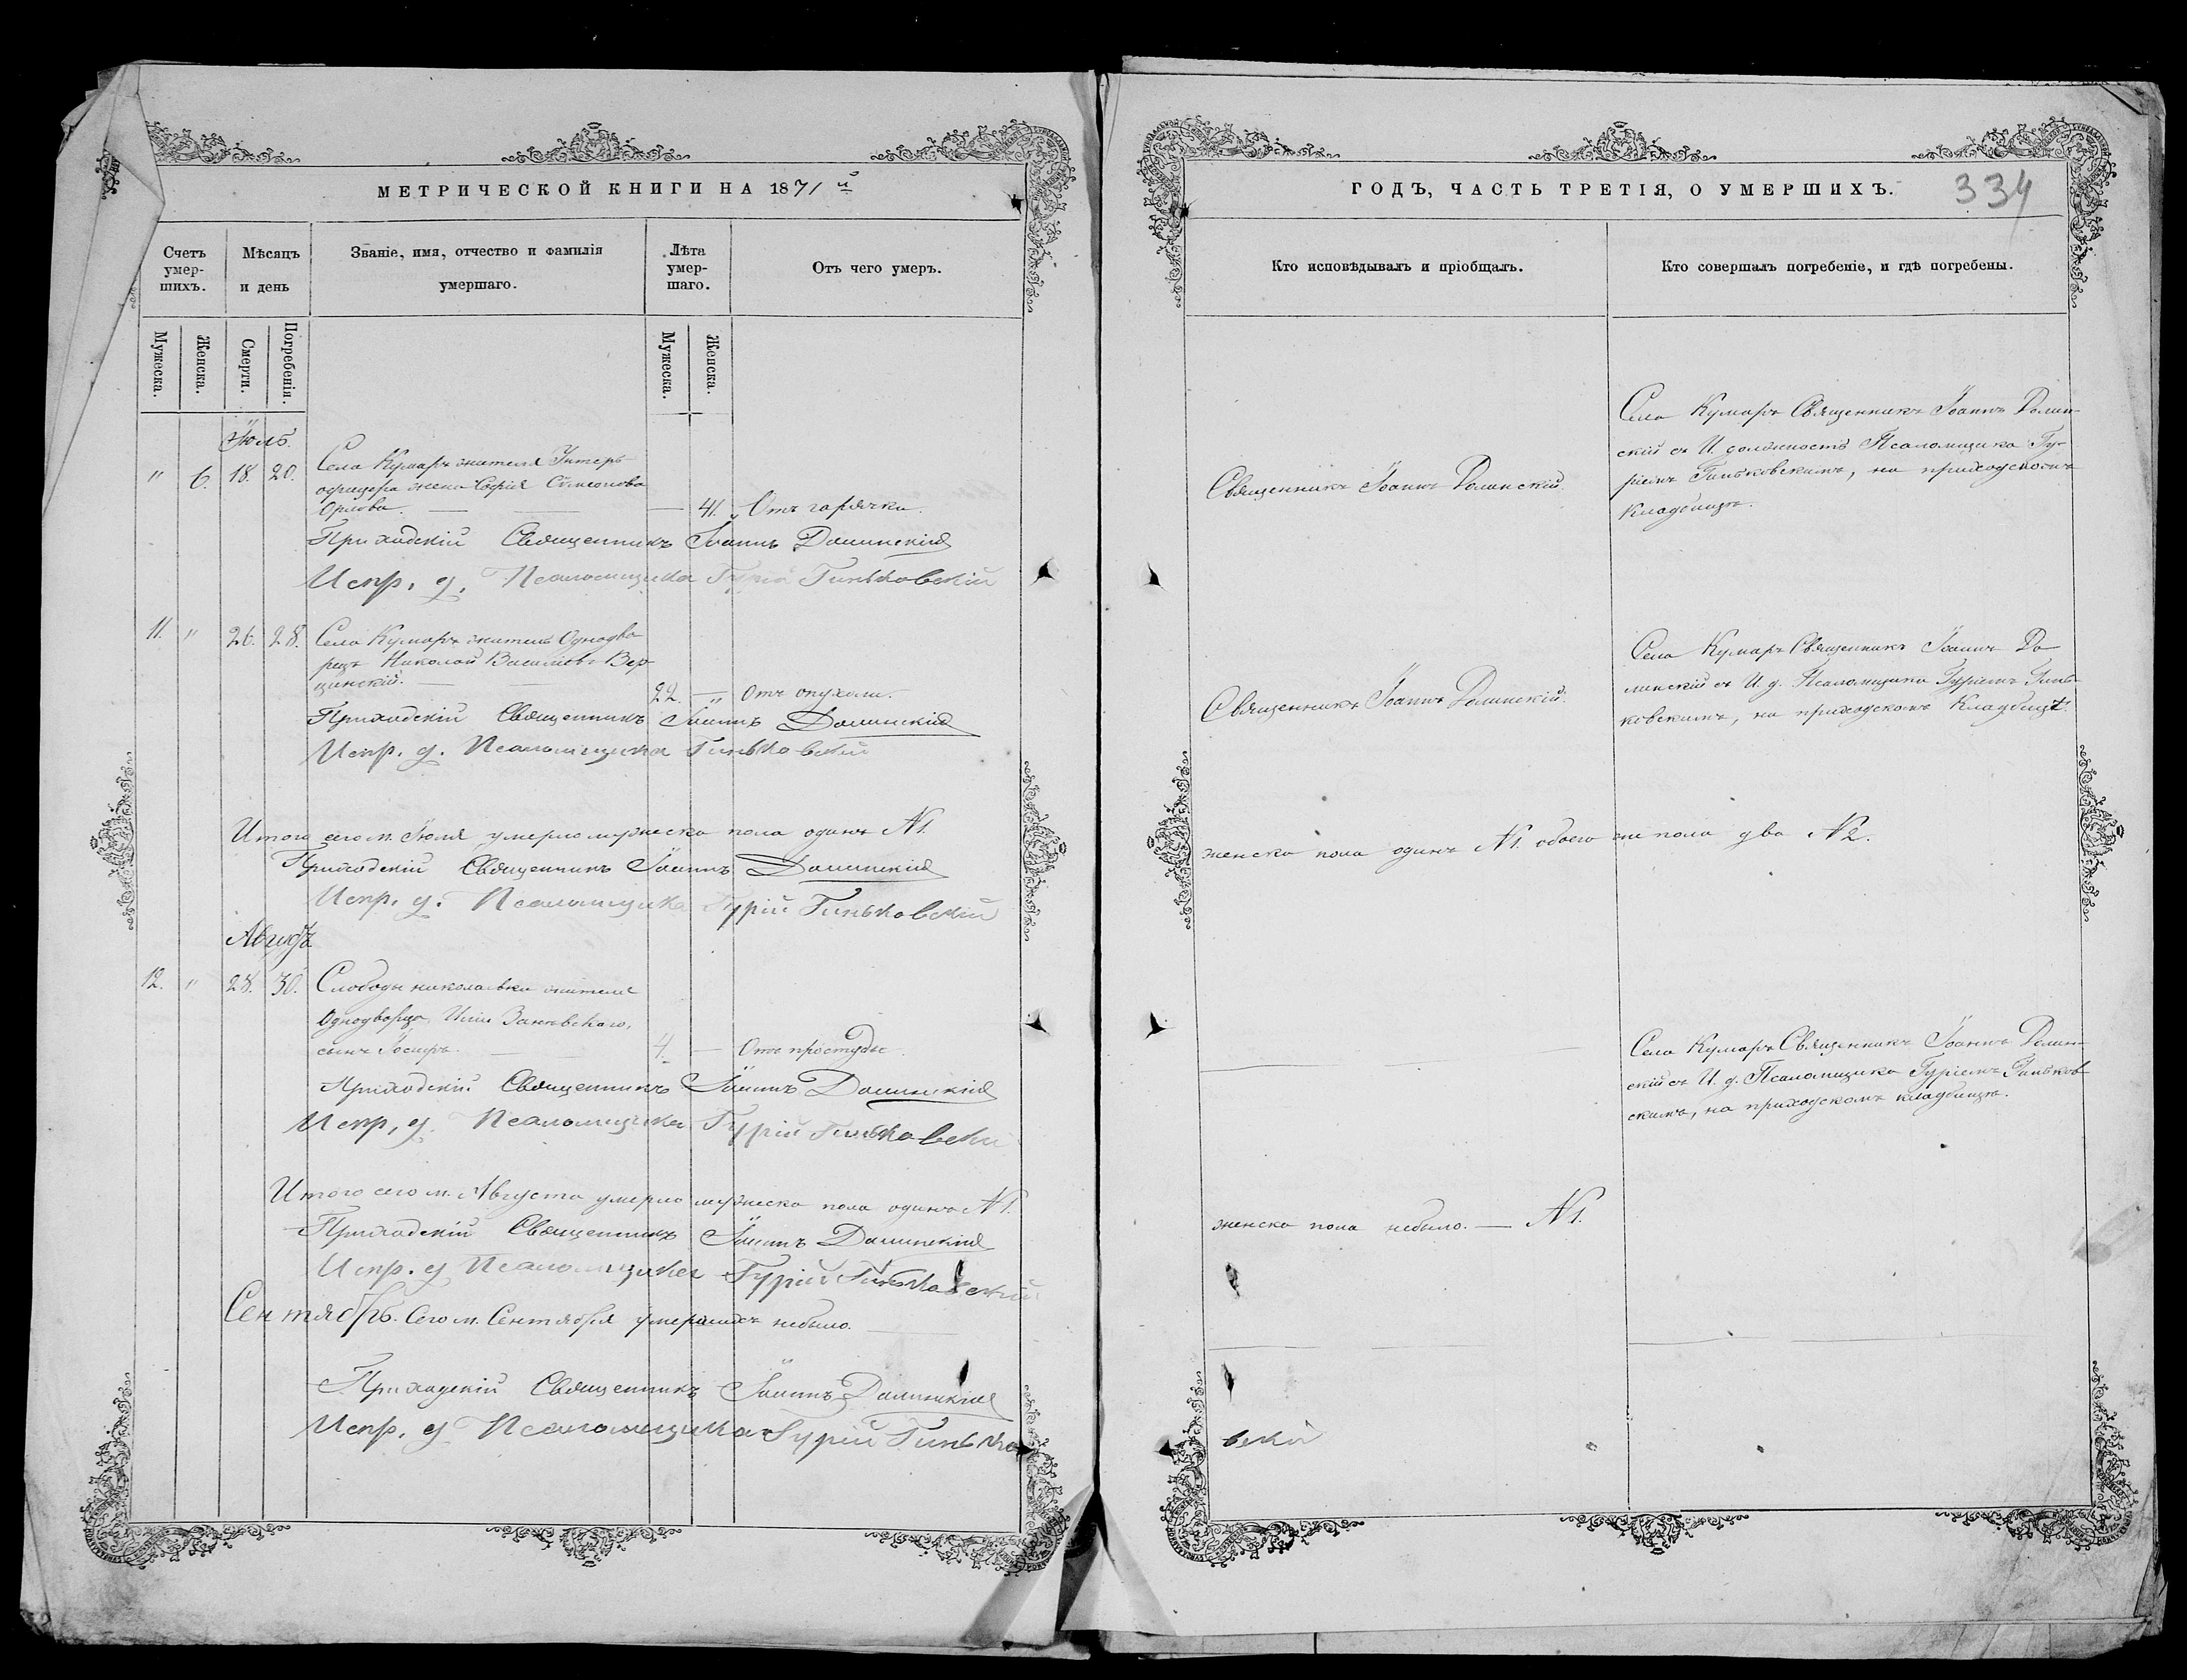 МЕТРИЧЕСКОЙ КНИГИ НА 1871й
Счетъ умер-шихъ.
Мѣсяцъ и день
Званіе, имя, отчество и фамилія умершаго.
Лѣта умер-шаго.
Отъ чего умеръ.
Мужеска.
Женска.
Смерти.
Погребенія.
Мужеска.
Женска.
Іюль.
" 6. 18. 20. Села Кумаръ жителя Унтеръ
офицера жена Софія Сумеонова
Орлова. — — — 41. Отъ горячки.
Приходскій Священникъ Іоаннъ Долинскій
Испр. д. Псаломщика Гурій Гиньковскій
11. " 26. 28. Села Кумаръ житель Однодво
рецъ Николай Васильевъ Вер-
цинскій. — — 22. — " Отъ опухоли.
Приходскій Священникъ Іоаннъ Долинскій
Испр. д. Псаломщика Гиньковскій
Итого сего м. Іюля умерло мужеска пола одинъ N 1.
Приходскій Священникъ Іоаннъ Долинскій
Испр. д. Псаломщика Гурій Гиньковскій
Августъ
12. " 28. 30. Слободы николаевки жителя
Однодворца Иліи Заневскаго,
сынъ Іосифъ. — — 4. — Отъ простуды.
Приходскій Священникъ Іоаннъ Долинскій
Испр, д. Псаломщика Гурій Гиньковскій
Итого сего м. Августа умерло мужеска пола одинъ N 1.
Приходскій Священникъ Іоаннъ Долинскій
Испр. д Псаломщика Гурій Гиньковскій
Сентябрь. Сего м. Сентября умершихъ небыло.
Приходскій Священникъ Іоаннъ Долинскій
Испр. д Псаломщика Гурій Гинько
ГОДЪ, ЧАСТЬ ТРЕТІЯ, О УМЕРШИХЪ.
334
Кто исповѣдывалъ и пріобщалъ.
Кто совершалъ погребеніе, и гдѣ погребены.
Священникъ Іоаннъ Долинскій.
Села Кумаръ Священникъ Іоаннъ Долин-
скій съ И. должность Псаломщика Гу-
ріемъ Гиньковскимъ, на приходскомъ
Кладбищѣ.
Священникъ Іоаннъ Долинскій.
Села Кумаръ Священникъ Іоаннъ До
линскій съ И. д. Псаломщика Гуріемъ Гинь-
ковскимъ, на приходскомъ Кладбищѣ.
женска пола одинъ N 1. обоего же пола два N 2.
Села Кумаръ Священникъ Іоаннъ Долин-
скій съ И. д. Псаломщика Гуріемъ Гиньков
скимъ, на приходскомъ кладбищѣ.
женска пола небыло. — N 1.
вскій